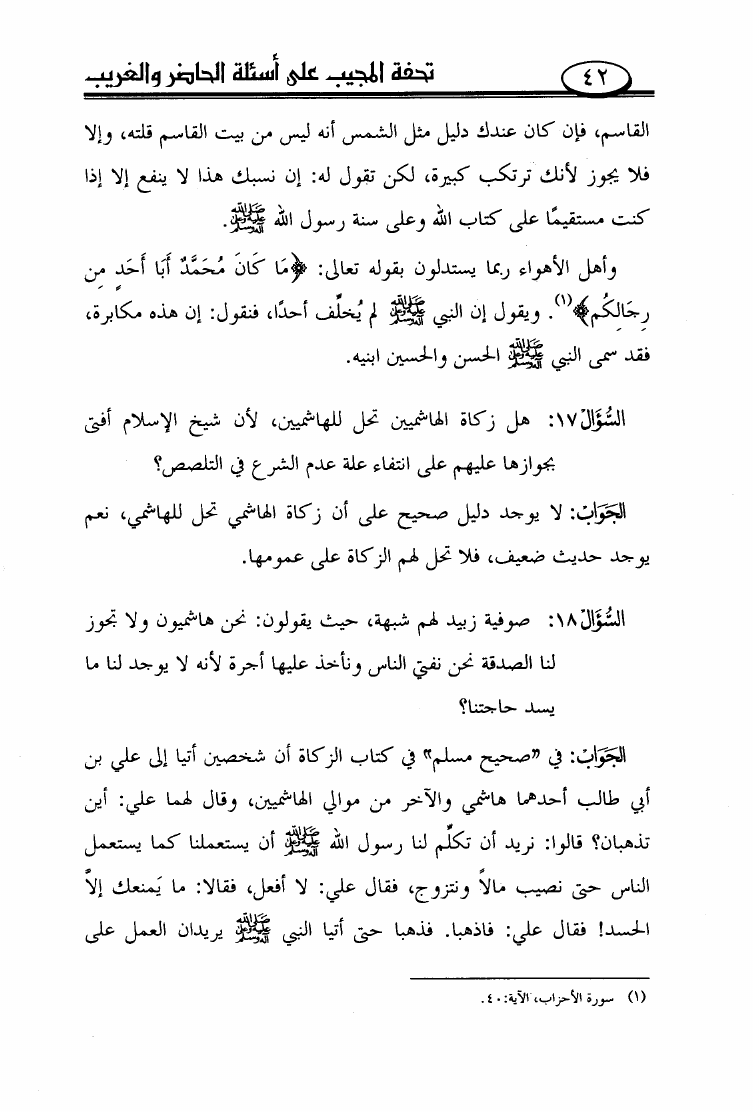 تحفة المجيب على أسئلة الحاضر والغريب
٤٢
القاسم، فإن كان عندك دليل مثل الشمس أنه ليس من بيت القاسم قلته، وإلا
فلا يجوز لأنك ترتكب كبيرة، لكن تقول له: إن نسبك هذا لا ينفع إلا إذا
كنت مستقيمًا على كتاب الله وعلى سنة رسول الله ﷺ.
وأهل الأهواء ربما يستدلون بقوله تعالى: ﴿مَا كَانَ مُحَمَّدٌ أَبَا أَحَدٍ مِن
رِجَالِكُم﴾(١). ويقول إن النبي ﷺ لم يُخلِّف أحدًا، فنقول: إن هذه مكابرة،
فقد سمى النبي ﷺ الحسن والحسين ابنيه.
السُّؤَال١٧: هل زكاة الهاشميين تحل للهاشميين، لأن شيخ الإسلام أفتى
بجوازها عليهم على انتفاء علة عدم الشرع في التلصص؟
الجَوَابُ: لا يوجد دليل صحيح على أن زكاة الهاشمي تحل للهاشمي، نعم
يوجد حديث ضعيف، فلا تحل لهم الزكاة على عمومها.
السُّؤَال١٨: صوفية زبيد لهم شبهة، حيث يقولون: نحن هاشميون ولا تجوز
لنا الصدقة نحن نفتي الناس ونأخذ عليها أجرة لأنه لا يوجد لنا ما
يسد حاجتنا؟
الجَوَابُ: في "صحيح مسلم" في كتاب الزكاة أن شخصين أتيا إلى علي بن
أبي طالب أحدهما هاشمي والآخر من موالي الهاشميين، وقال لهما علي: أين
تذهبان؟ قالوا: نريد أن تكلِّم لنا رسول الله ﷺ أن يستعملنا كما يستعمل
الناس حتى نصيب مالاً ونتزوج، فقال علي: لا أفعل، فقالا: ما يَمنعك إلاَّ
الحسد! فقال علي: فاذهبا. فذهبا حتى أتيا النبي ﷺ يريدان العمل على
(١) سورة الأحزاب، الآية:٤٠.